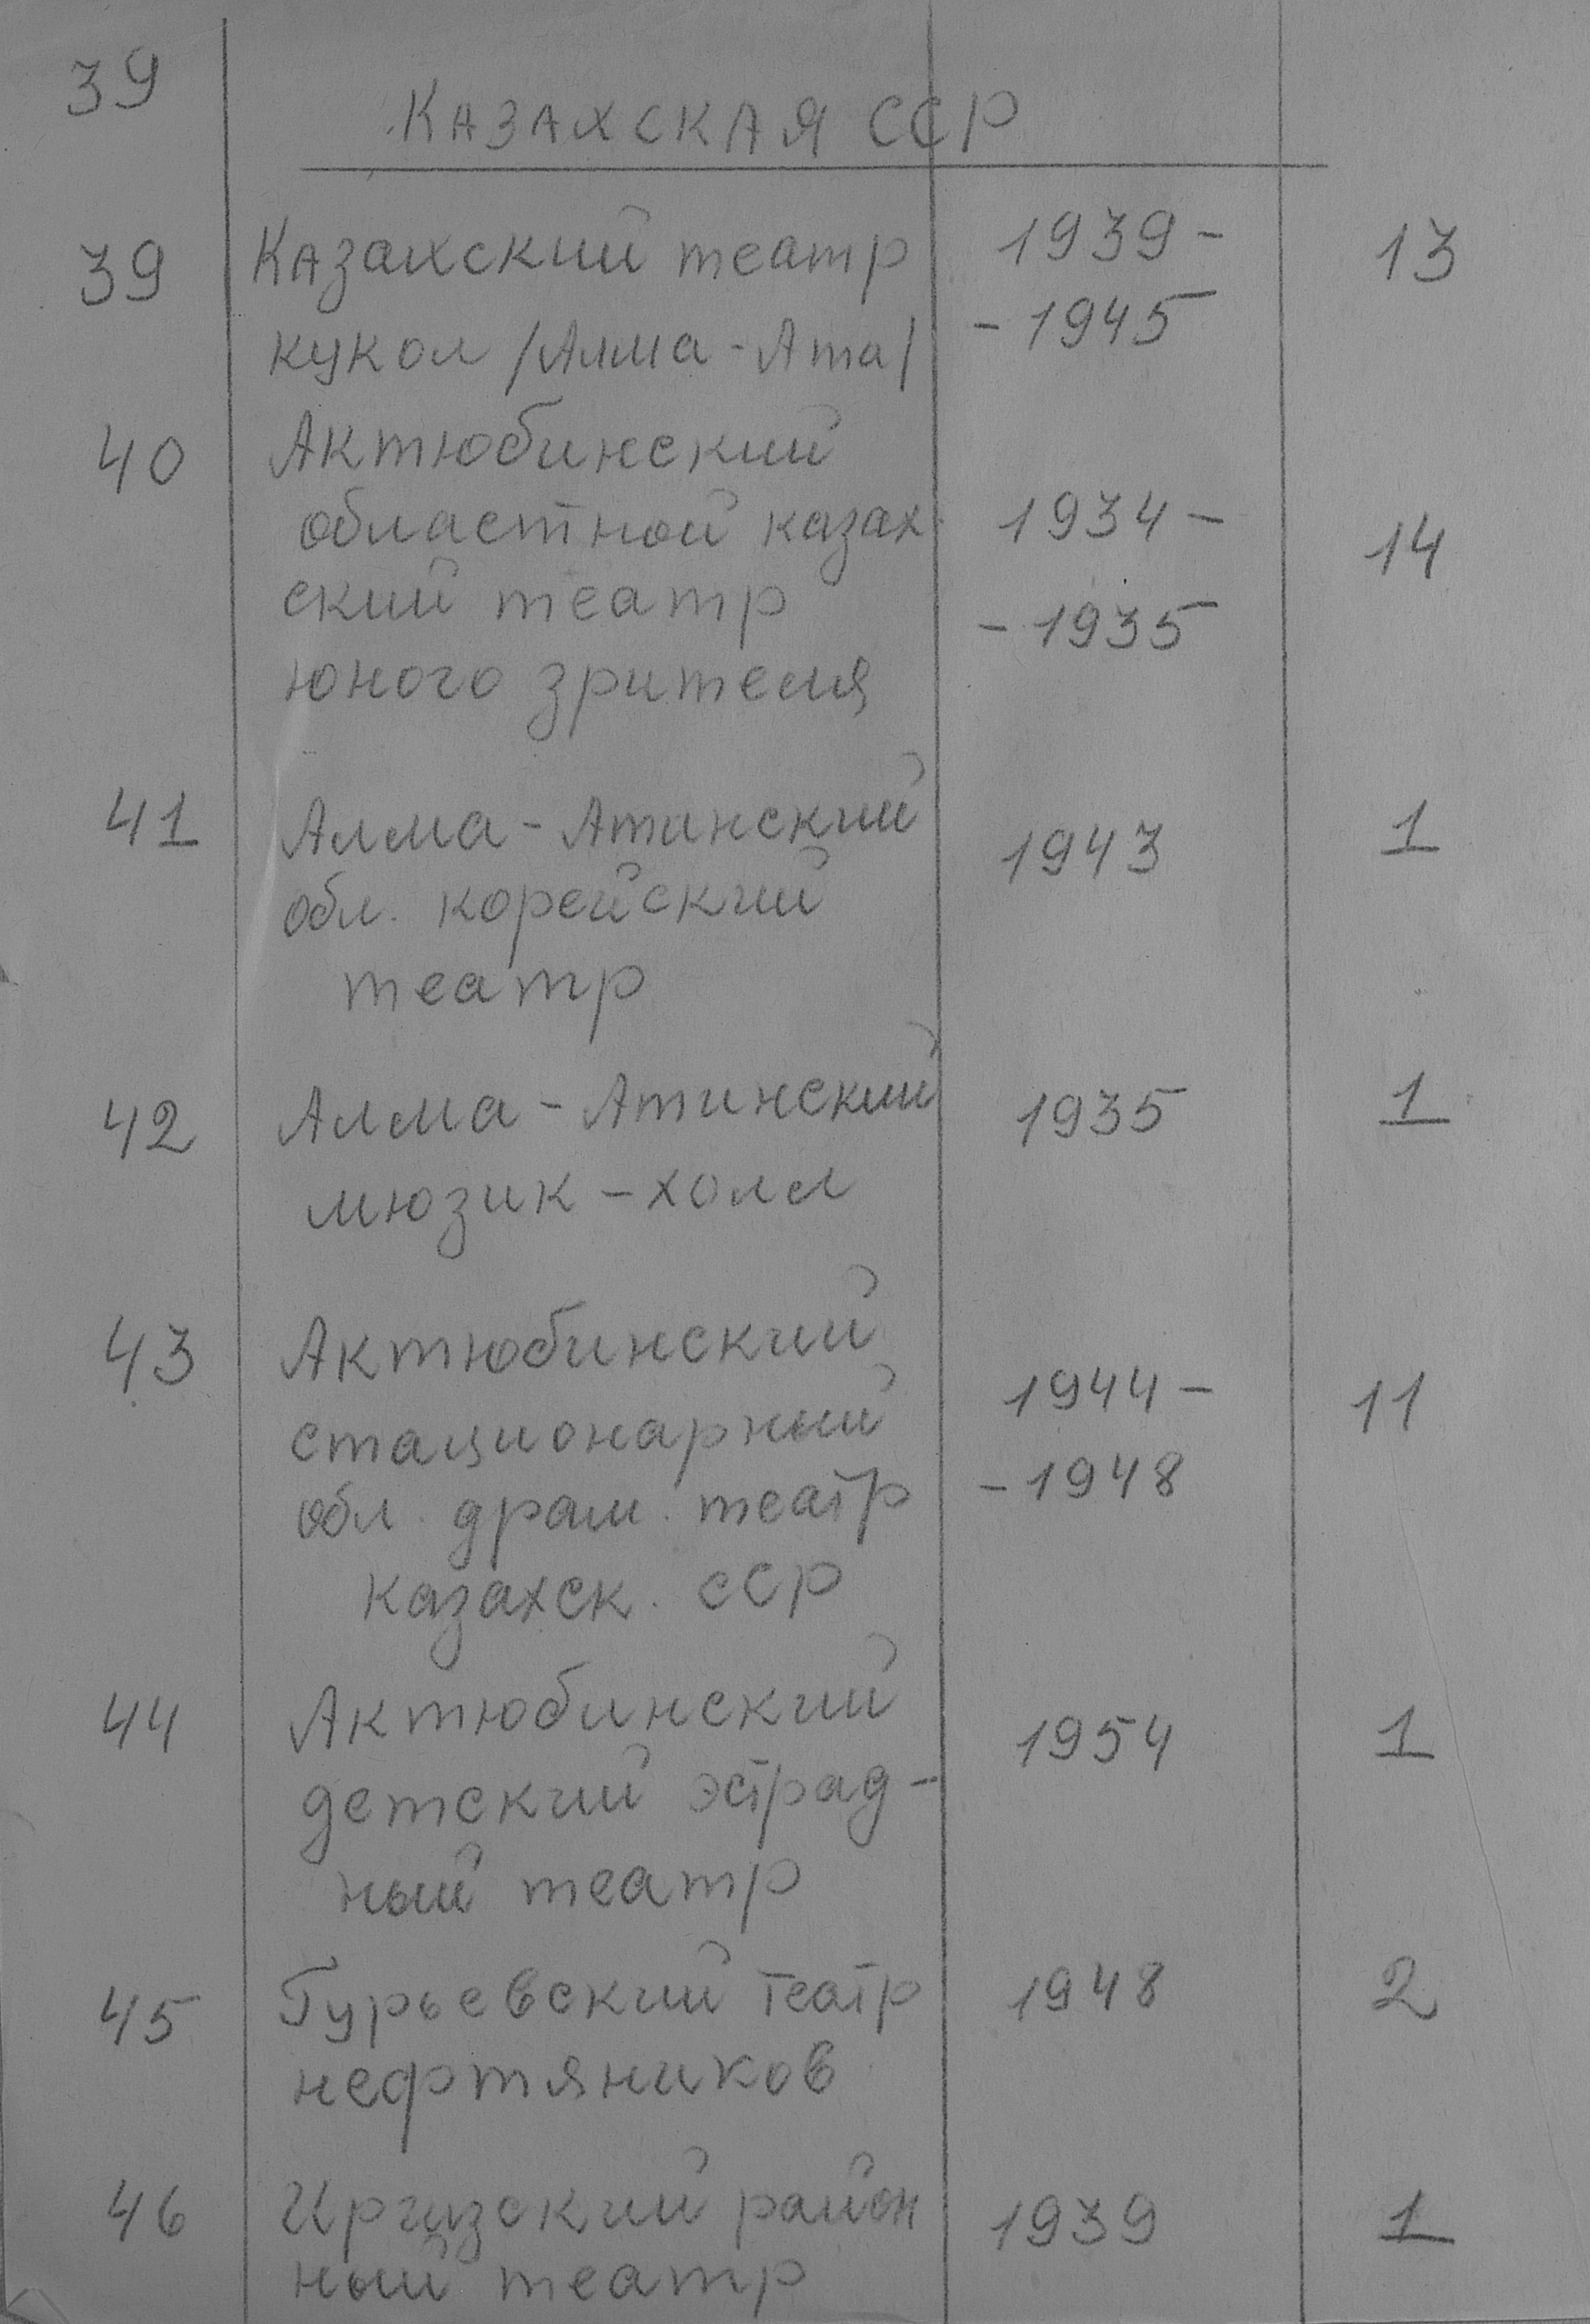 39
КАЗАХСКАЯ ССР
39 Казахский театр 1939- 13
кукол /Алма-Ата/ -1945
40 Актюбинский
областной казах 1934- 14
ский театр -1935
юного зрителя
41 Алма-Атинский 1943 1
обл. корейский
театр
42 Алма-Атинский 1935 1
мюзик-холл
43 Актюбинский
стационарный 1944- 11
обл. драм. театр -1948
казахск. ССР
44 Актюбинский 1954 1
детский эстрад-
ный театр
45 Гурьевский театр 1948 2
нефтяников
46 Иргизский район 1939 1
ный театр